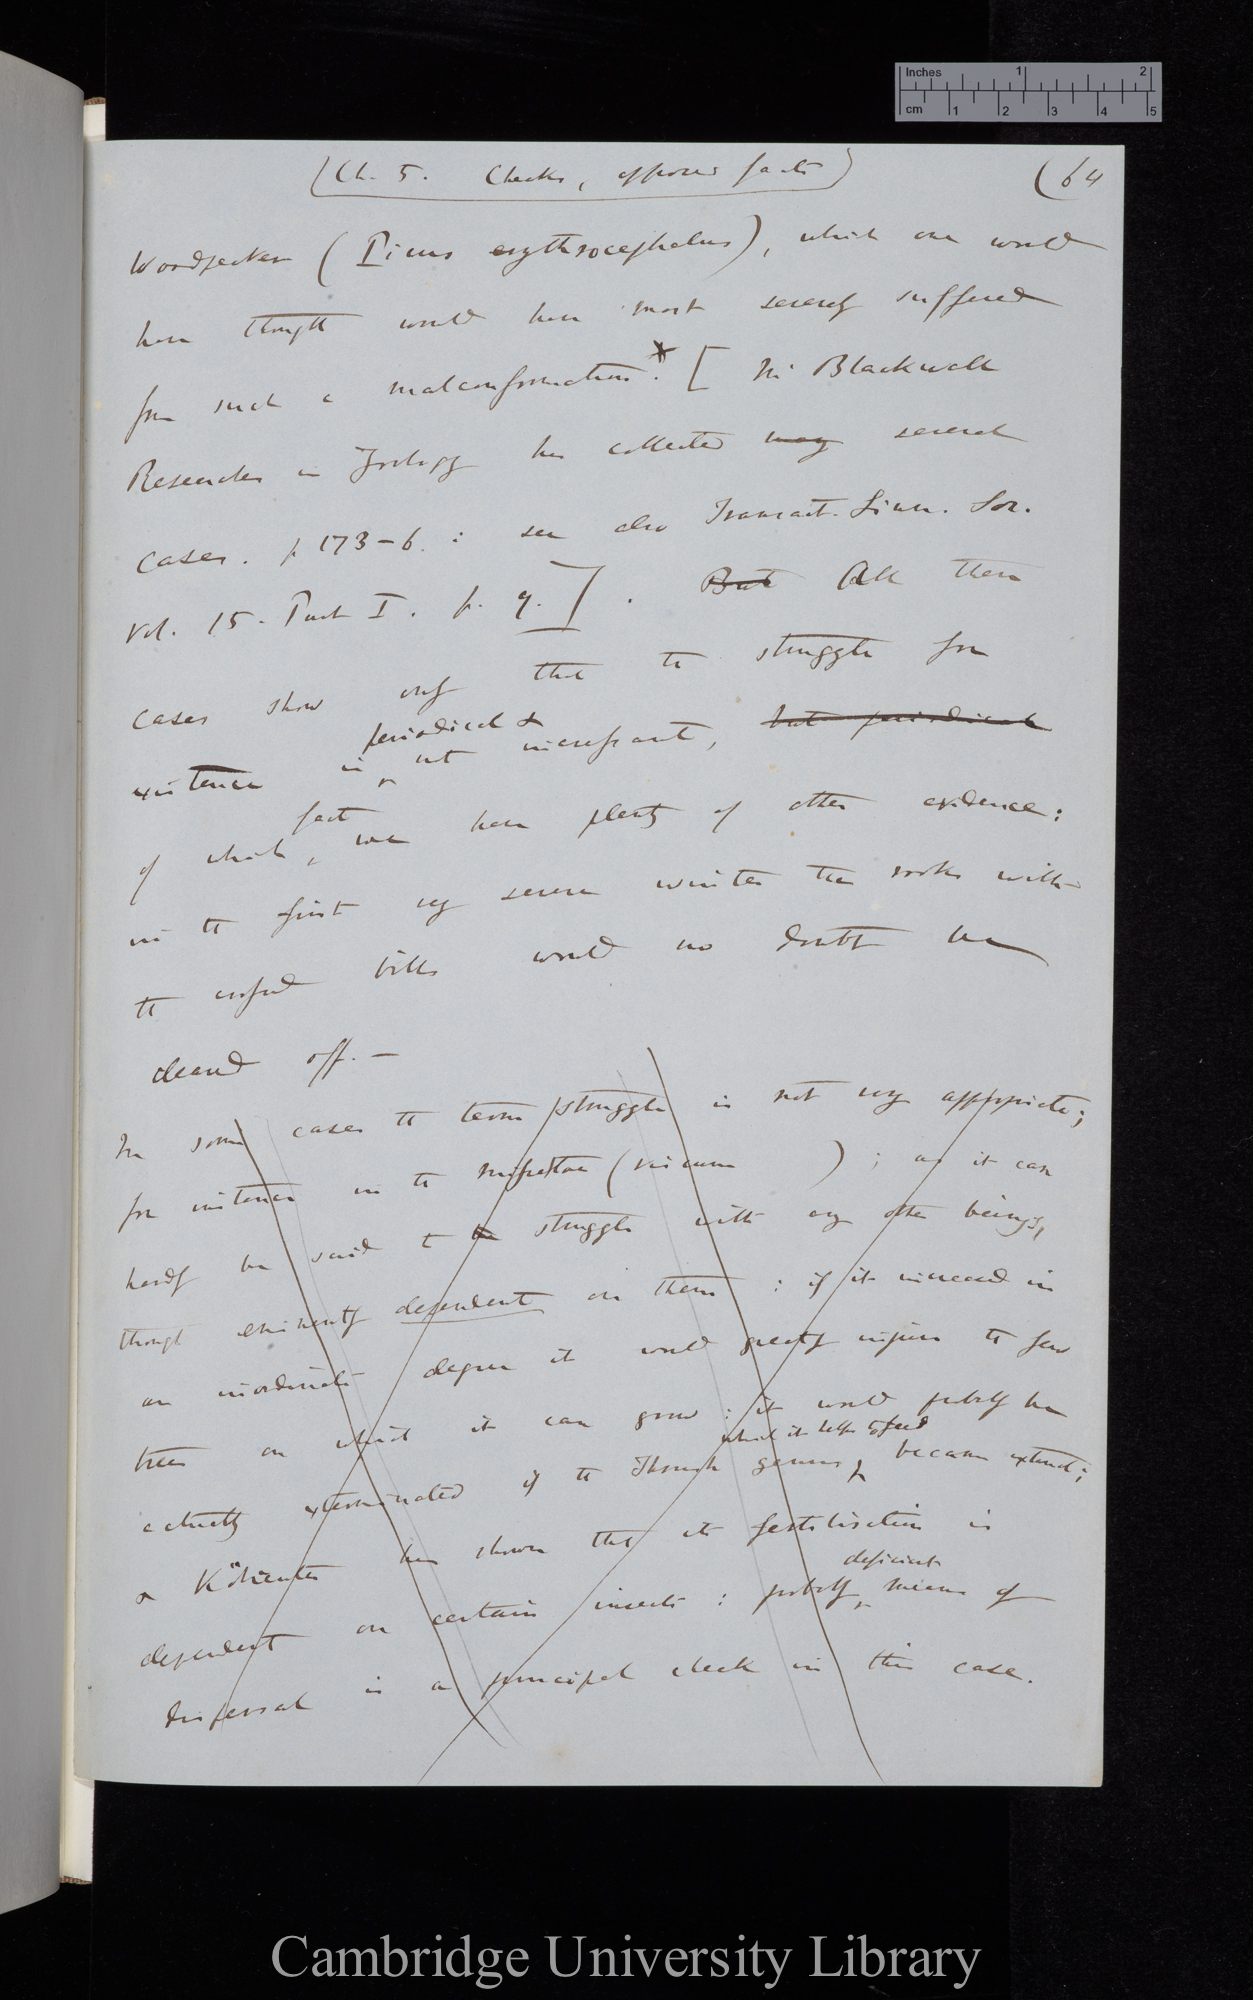 Inches 1 2
cm 1 2 3 4 5
(Ch. 5. Checks, opposed facts)
(64
Woodpecker (Picus erythrocephalus), which one would
have thought would have most severely suffered
from such a malconformation*. [ In Blackwall
Researches in Zoology he has collected many several
cases. p 173-6. : see also Transact. Linn. Soc.
vol. 15. Part I. p. 9. ] . But All these
cases show only that the struggle for
periodical &
existence is not incessant, but periodical
fact
of which, we have plenty of other evidence:
in the first very severe winter the rooks with
the crossed bills would no doubt be
cleared off. —
In some cases the term struggle is not very appropriate;
for instance in the misseltoe (viscum ) ; as it can
hardly be said to be struggle with any other beings,
though eminently dependent on them : if it increased in
an inordinate degree it would greatly injure the few
trees on which it can grow : it would probably be
which it helps to feed
actually exterminated if the Thrush genus, became extinct;
& Kölreuter has shown that its fertilisation is
deficient
dependent on certain insects : probably, means of
dispersal is a principal check in this case.
Cambridge University Library